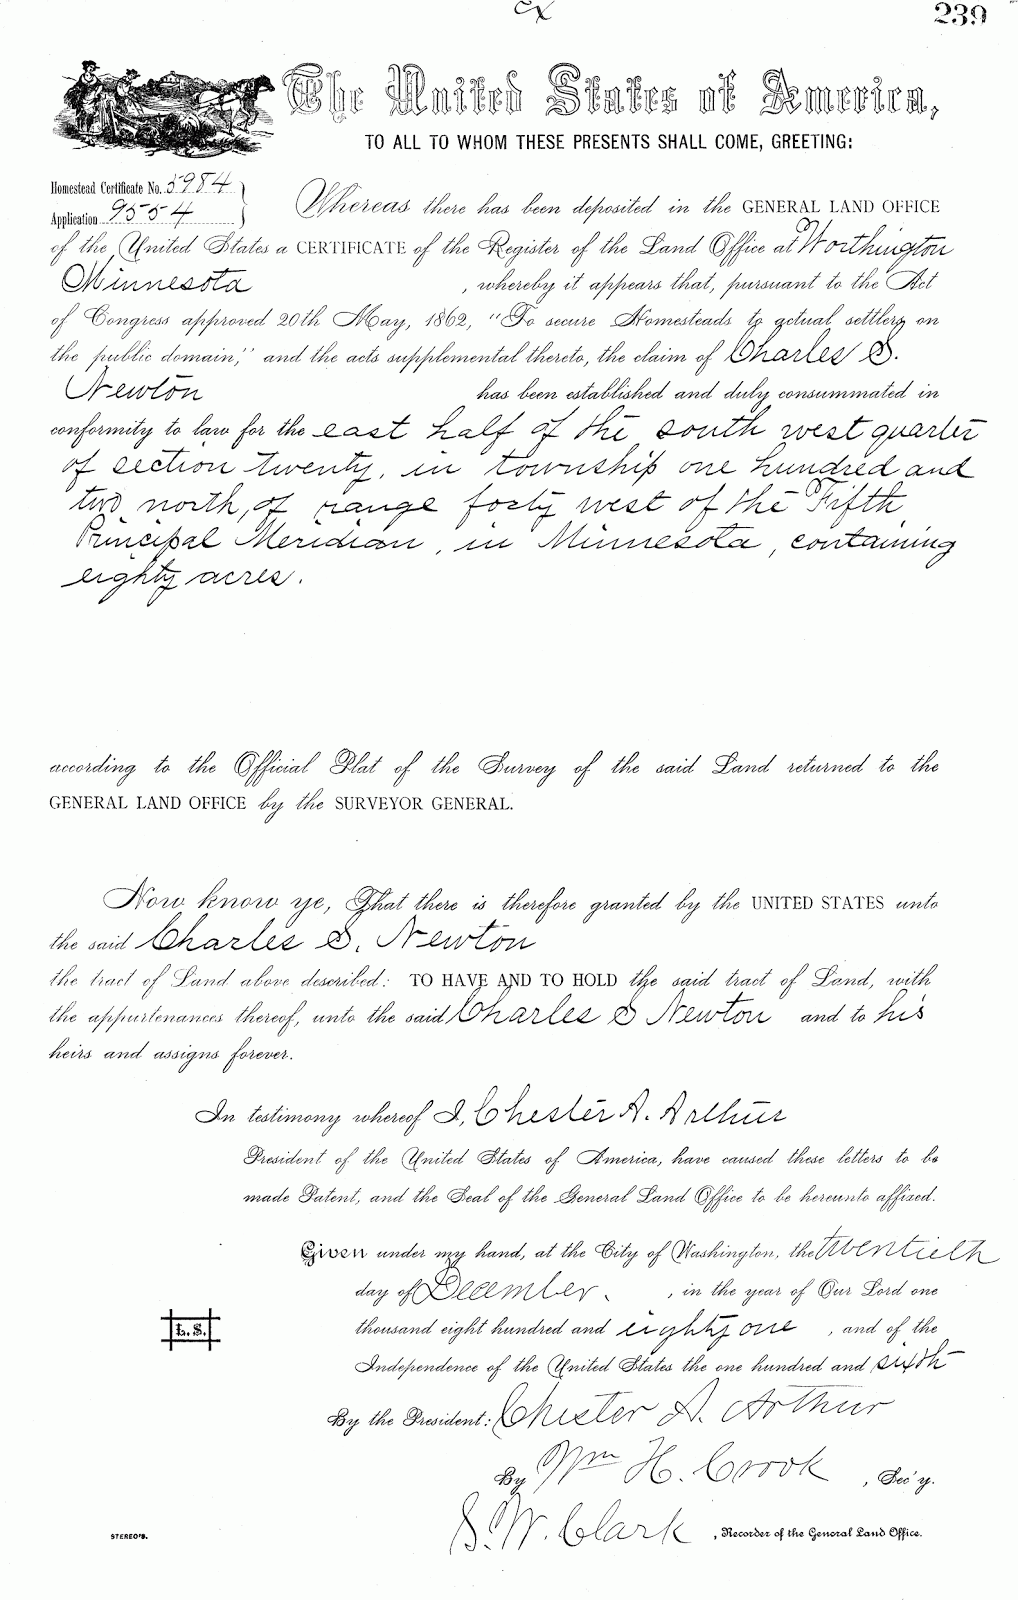 239
The United States of America,
TO ALL TO WHOM THESE PRESENTS SHALL COME, GREETING:
Homestead Certificate No. 5984
Application 9554
Whereas there has been deposited in the GENERAL LAND OFFICE
of the United States a CERTIFICATE of the Register of the Land Office at Worthington
Minnesota, whereby it appears that, pursuant to the Act
of Congress approved 20th May, 1862, "To secure Homesteads to actual settlers on
the public domain," and the acts supplemental thereto, the claim of Charles S.
Newton has been established and duly consummated in
conformity to law for the east half of the south west quarter
of section twenty, in township one hundred and
two north, of range forty west of the Fifth
Principal Meridian, in Minnesota, containing
eighty acres.
according to the Official Plat of the Survey of the said Land returned to the
GENERAL LAND OFFICE by the SURVEYOR GENERAL.
Now know ye, That there is therefore granted by the UNITED STATES unto
the said Charles S. Newton
the tract of Land above described: TO HAVE AND TO HOLD the said tract of Land, with
the appurtenances thereof, unto the said Charles S Newton and to his
heirs and assigns forever.
In testimony whereof I, Chester A. Arthur
President of the United States of America, have caused these letters to be
made Patent, and the Seal of the General Land Office to be hereunto affixed.
Given under my hand, at the City of Washington, the twentieth
day of December, in the year of Our Lord one
thousand eight hundred and eighty one, and of the
L.S.
Independence of the United States the one hundred and sixth
By the President: Chester A. Arthur
By Wm H. Crook, Sec'y.
S. W. Clark, Recorder of the General Land Office.
STEREO'S.